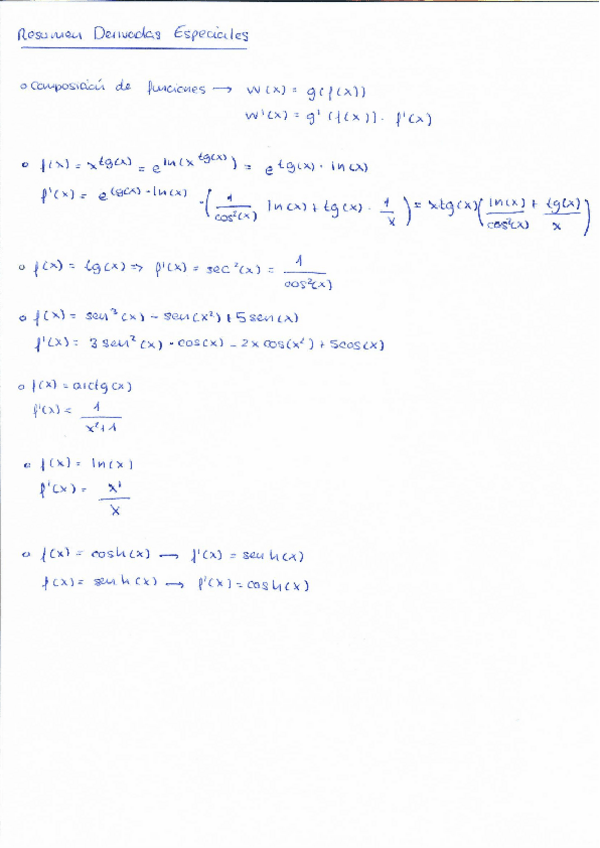 Resumen Derivadas Especiales
o Composición de funciones → W(x) = g(f(x))
W'(x) = g'(f(x)) · f'(x)
o f(x) = x^tg(x) = e^ln(x^tg(x)) = e^tg(x) · ln(x)
f'(x) = e^tg(x) · ln(x) · (1/cos²(x) ln(x) + tg(x) · 1/x) = x tg(x) (ln(x)/cos²(x) + tg(x)/x)
o f(x) = tg(x) ⇒ f'(x) = sec²(x) = 1/cos²(x)
o f(x) = sen³(x) - sen(x²) + 5 sen(x)
f'(x) = 3 sen²(x) · cos(x) - 2x cos(x²) + 5cos(x)
o f(x) = arctg(x)
f'(x) = 1/x²+1
o f(x) = ln(x)
f'(x) = x'/x
o f(x) = cosh(x) → f'(x) = senh(x)
f(x) = senh(x) → f'(x) = cosh(x)